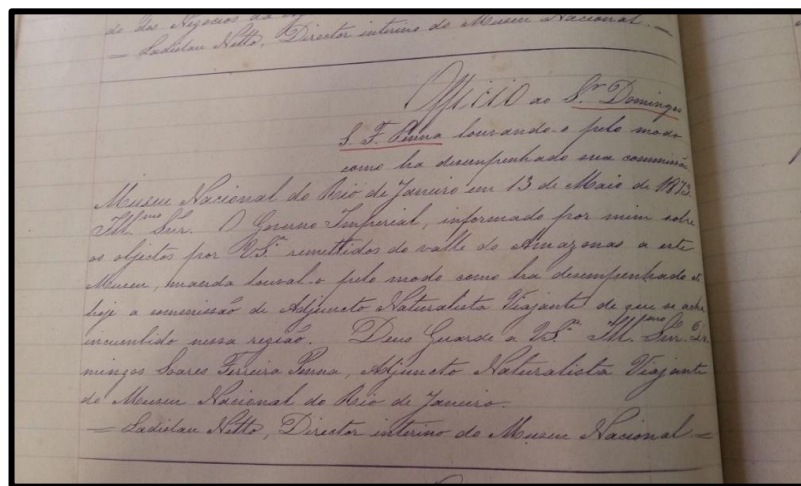 do dos Negocios da
= Ladislau Netto, Director interino do Museu Nacional. =
Officio ao Snr. Domingos
S. F. Penna louvando-o pelo modo
como ha desempenhado sua commissão.
Museu Nacional do Rio de Janeiro em 13 de Maio de 1873.
Illmo. Snr. O Governo Imperial, informado por mim sobre
os objectos por V.Sa. remettidos do valle do Amazonas a este
Museu, manda louval-o pelo modo como ha desempenhado
hoje a commissão de Adjuncto Naturalista Viajante de que se acha
incumbido nessa região. Deus Guarde a V.Sa. Illmo. Snr. Do
mingos Soares Ferreira Penna, Adjuncto Naturalista Viajante
do Museu Nacional do Rio de Janeiro.
= Ladislau Netto, Director interino do Museu Nacional =